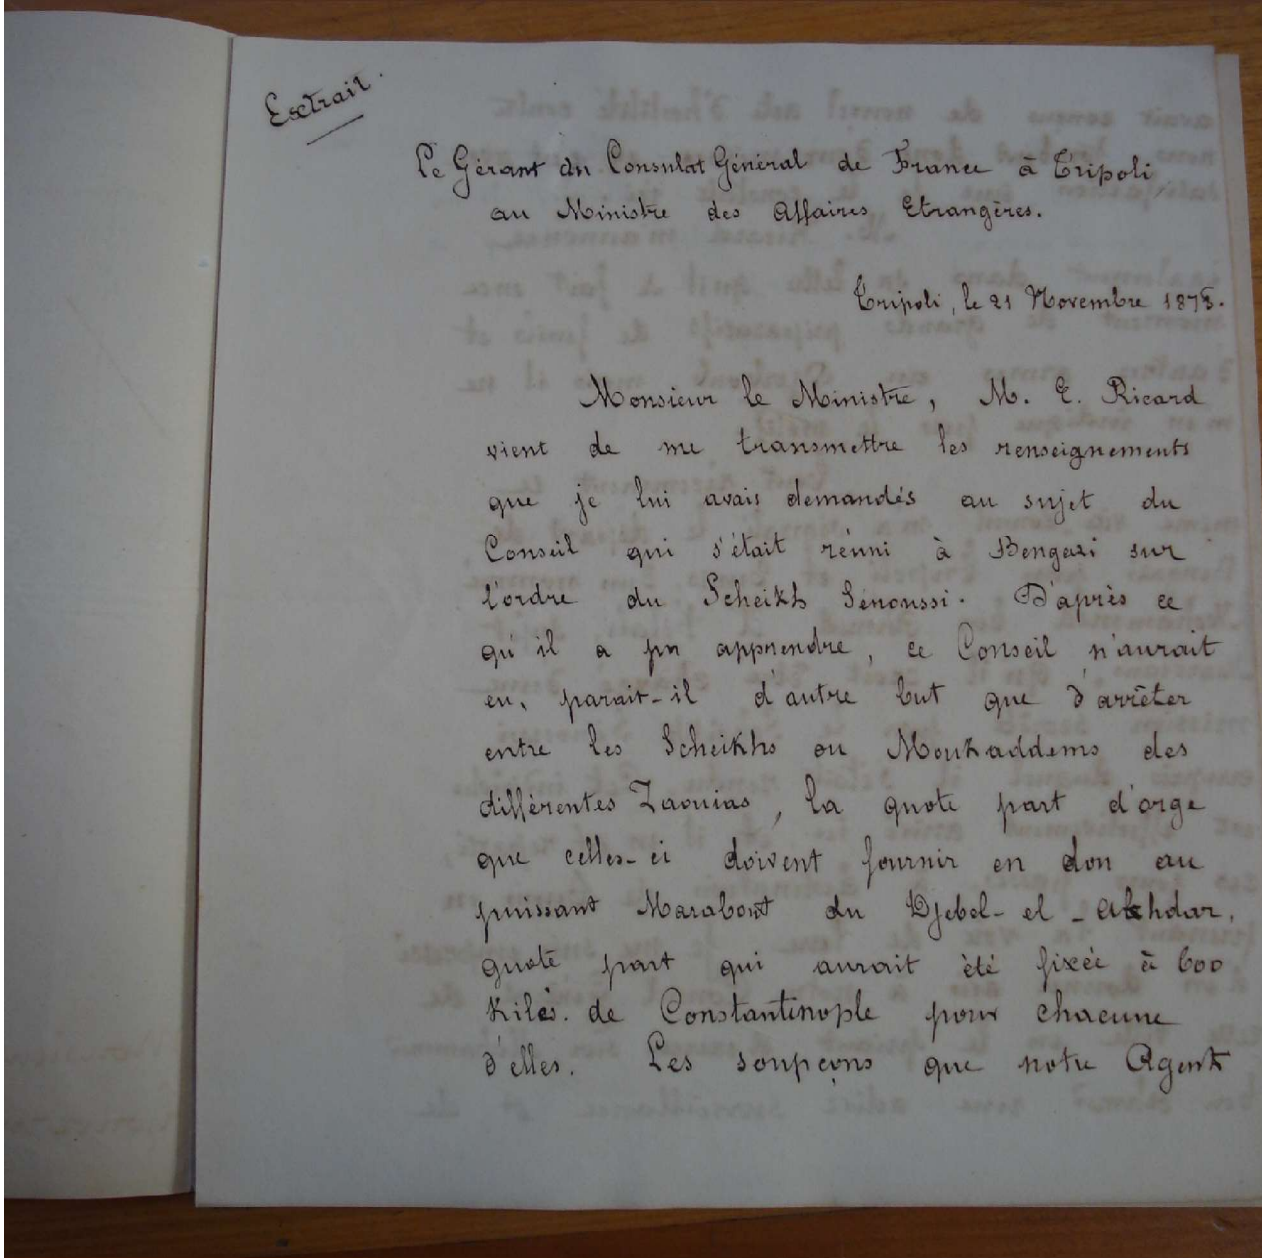 Extrait.
Le Gérant du Consulat Général de France à Tripoli
au Ministre des Affaires Etrangères.
Tripoli, le 21 Novembre
Monsieur le Ministre, M. E. Ricard
vient de me transmettre les renseignements
que je lui avais demandés au sujet du
Conseil qui s'était réuni à Bengazi sur
l'ordre du Scheikh Senoussi. D'après ce
qu'il a pu apprendre, ce Conseil n'aurait
eu, parait-il d'autre but que d'arrêter
entre les Scheikhs ou Moukaddems des
différentes Zaouias, la quote part d'orge
que celles-ci doivent fournir en don au
puissant Marabout du Djebel-el-Akhdar,
quote part qui aurait été fixée à 600
Kilés. de Constantinople pour chacune
d'elles. Les soupçons que notre Agent